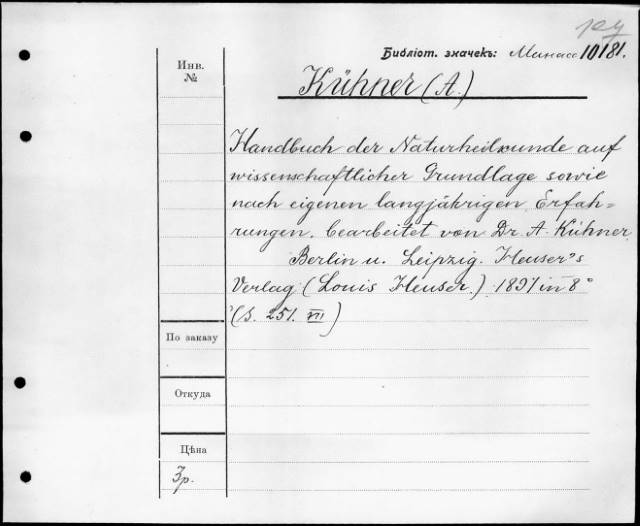 Библіот. значекъ: Минасс 10181.
Инв.
№
Kühner (A.)
Handbuch der Naturheilkunde auf
wissenschaftlicher Grundlage sowie
nach eigenen langjährigen Erfah=
rungen, bearbeitet von Dr. A. Kühner.
Berlin u. Leipzig. Heuser's
Verlag (Louis Heuser.) 1891 in 8°
(S. 251. VII)
По заказу
Откуда
Цѣна
3р.